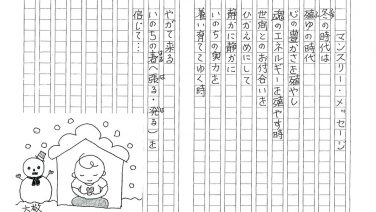 マンスリー・メッセージ
冬の時代は
殖ゆの時代
心の豊かさを殖やし
魂のエネルギーを殖やす時
世間とのお付合いを
ひかえめにして
静かに静かに
いのちの実力を
養い育ててゆく時
やがて来る
いのちの春(張る・発る)を
信じて…